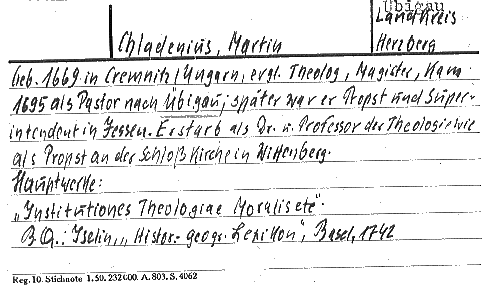 Übigau
Landkreis
Chladenius, Martin Herzberg
geb. 1669 in Cremnitz/Ungarn, evgl. Theolog, Magister, kam
1695 als Pastor nach Übigau; später war er Propst und Super-
intendent in Jessen. Er starb als Dr. u. Professor der Theologie wie
als Propst an der Schloß Kirche in Wittenberg.
Hauptwerke:
„Institutiones Theologiae Moralis etc"
B Q.: Iselin, „Histor.- geogr. Lexikon", Basel, 1742
Reg. 10. Stichnote 1. 50. 232 000. A. 803. S. 4062